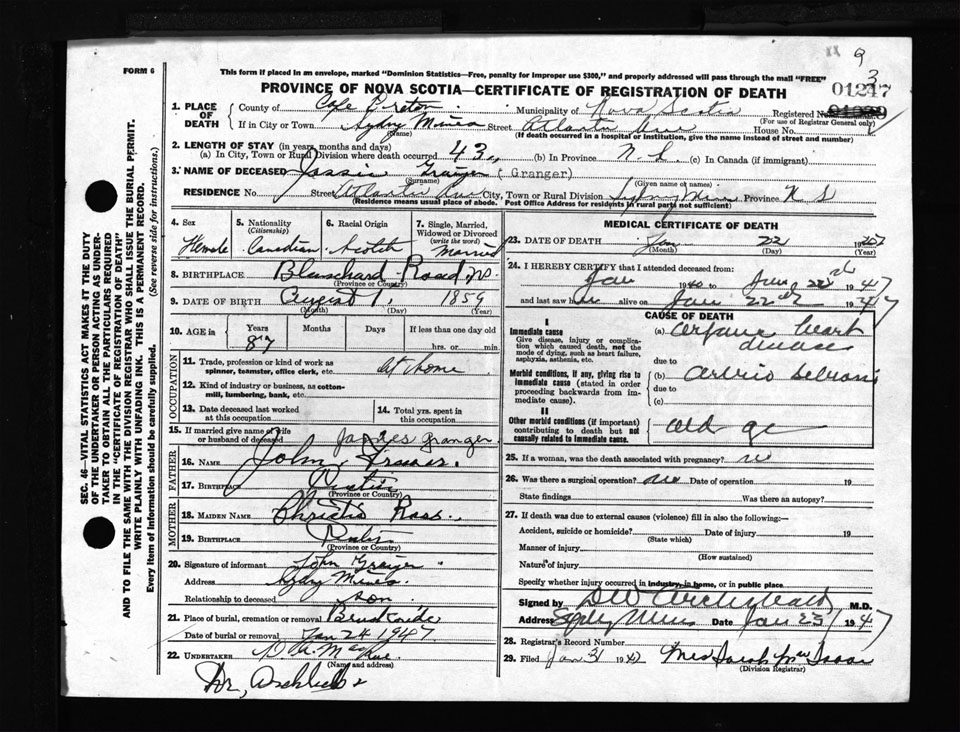 9
3
FORM 6
This form if placed in an envelope, marked "Dominion Statistics—Free, penalty for improper use $300," and properly addressed will pass through the mail "FREE"
01217
PROVINCE OF NOVA SCOTIA—CERTIFICATE OF REGISTRATION OF DEATH
1. PLACE OF DEATH County of Cape Breton Municipality of Nova Scotia Registered No.
(For use of Registrar General only)
If in City or Town Sydney Mines Street Atlantic Ave House No.
(Name) (If death occurred in a hospital or institution, give the name instead of street and number)
2. LENGTH OF STAY (in years, months and days)
(a) In City, Town or Rural Division where death occurred 43 (b) In Province N.S. (c) In Canada (if immigrant)
3. NAME OF DECEASED Jessie Granger (Granger)
(Surname) (Given name or names)
RESIDENCE No. Street Atlantic Ave City, Town or Rural Division Sydney Mines Province N S
(Residence means usual place of abode. Post Office Address for residents in rural parts not sufficient)
4. Sex
Female
5. Nationality
(Citizenship)
Canadian
6. Racial Origin
Scotch
7. Single, Married, Widowed or Divorced
(write the word)
Married
8. BIRTHPLACE Blanchard Road
(Province or Country)
9. DATE OF BIRTH August 1, 1859
(Month) (Day) (Year)
10. AGE in Years Months Days If less than one day old
87 hrs. or min.
OCCUPATION
11. Trade, profession or kind of work as spinner, teamster, office clerk, etc. at home
12. Kind of industry or business, as cotton-mill, lumbering, bank, etc.
13. Date deceased last worked at this occupation
14. Total yrs. spent in this occupation
15. If married give name of wife or husband of deceased James Granger
FATHER
16. NAME John Fraser
17. BIRTHPLACE Pictou
(Province or Country)
MOTHER
18. MAIDEN NAME Christie Ross
19. BIRTHPLACE
(Province or Country)
20. Signature of informant John Granger
Address Sydney Mines
Relationship to deceased son
21. Place of burial, cremation or removal
Date of burial or removal Jan 24 1947
22. UNDERTAKER
(Name and address)
Dr, Archibald
MEDICAL CERTIFICATE OF DEATH
23. DATE OF DEATH Jan 22 1947
(Month) (Day)
24. I HEREBY CERTIFY that I attended deceased from:
Jan 1940 to Jan 22nd 1947
and last saw her alive on Jan 22nd 1947
CAUSE OF DEATH
I
Immediate cause
Give disease, injury or complication which caused death, not the mode of dying, such as heart failure, asphyxia, asthenia, etc.
(a) organic heart disease
due to
Morbid conditions, if any, giving rise to immediate cause (stated in order proceeding backwards from immediate cause).
(b)
due to
(c)
II
Other morbid conditions (if important) contributing to death but not causally related to immediate cause.
old age
25. If a woman, was the death associated with pregnancy? no
26. Was there a surgical operation? no Date of operation 19
State findings Was there an autopsy?
27. If death was due to external causes (violence) fill in also the following:—
Accident, suicide or homicide? Date of injury 19
(State which)
Manner of injury
(How sustained)
Nature of injury
Specify whether injury occurred in industry, in home, or in public place
Signed by D W Archibald M.D.
Address Sydney Mines Date Jan 23 1947
28. Registrar's Record Number
29. Filed Jan 31 194 Mrs Sarah Mac Isaac
(Division Registrar)
SEC. 46—VITAL STATISTICS ACT MAKES IT THE DUTY
OF THE UNDERTAKER OR PERSON ACTING AS UNDER-
TAKER TO OBTAIN ALL THE PARTICULARS REQUIRED
IN THE "CERTIFICATE OF REGISTRATION OF DEATH"
AND TO FILE THE SAME WITH THE DIVISION REGISTRAR WHO SHALL ISSUE THE BURIAL PERMIT.
WRITE PLAINLY WITH UNFADING INK. THIS IS A PERMANENT RECORD.
Every item of information should be carefully supplied. (See reverse side for instructions.)